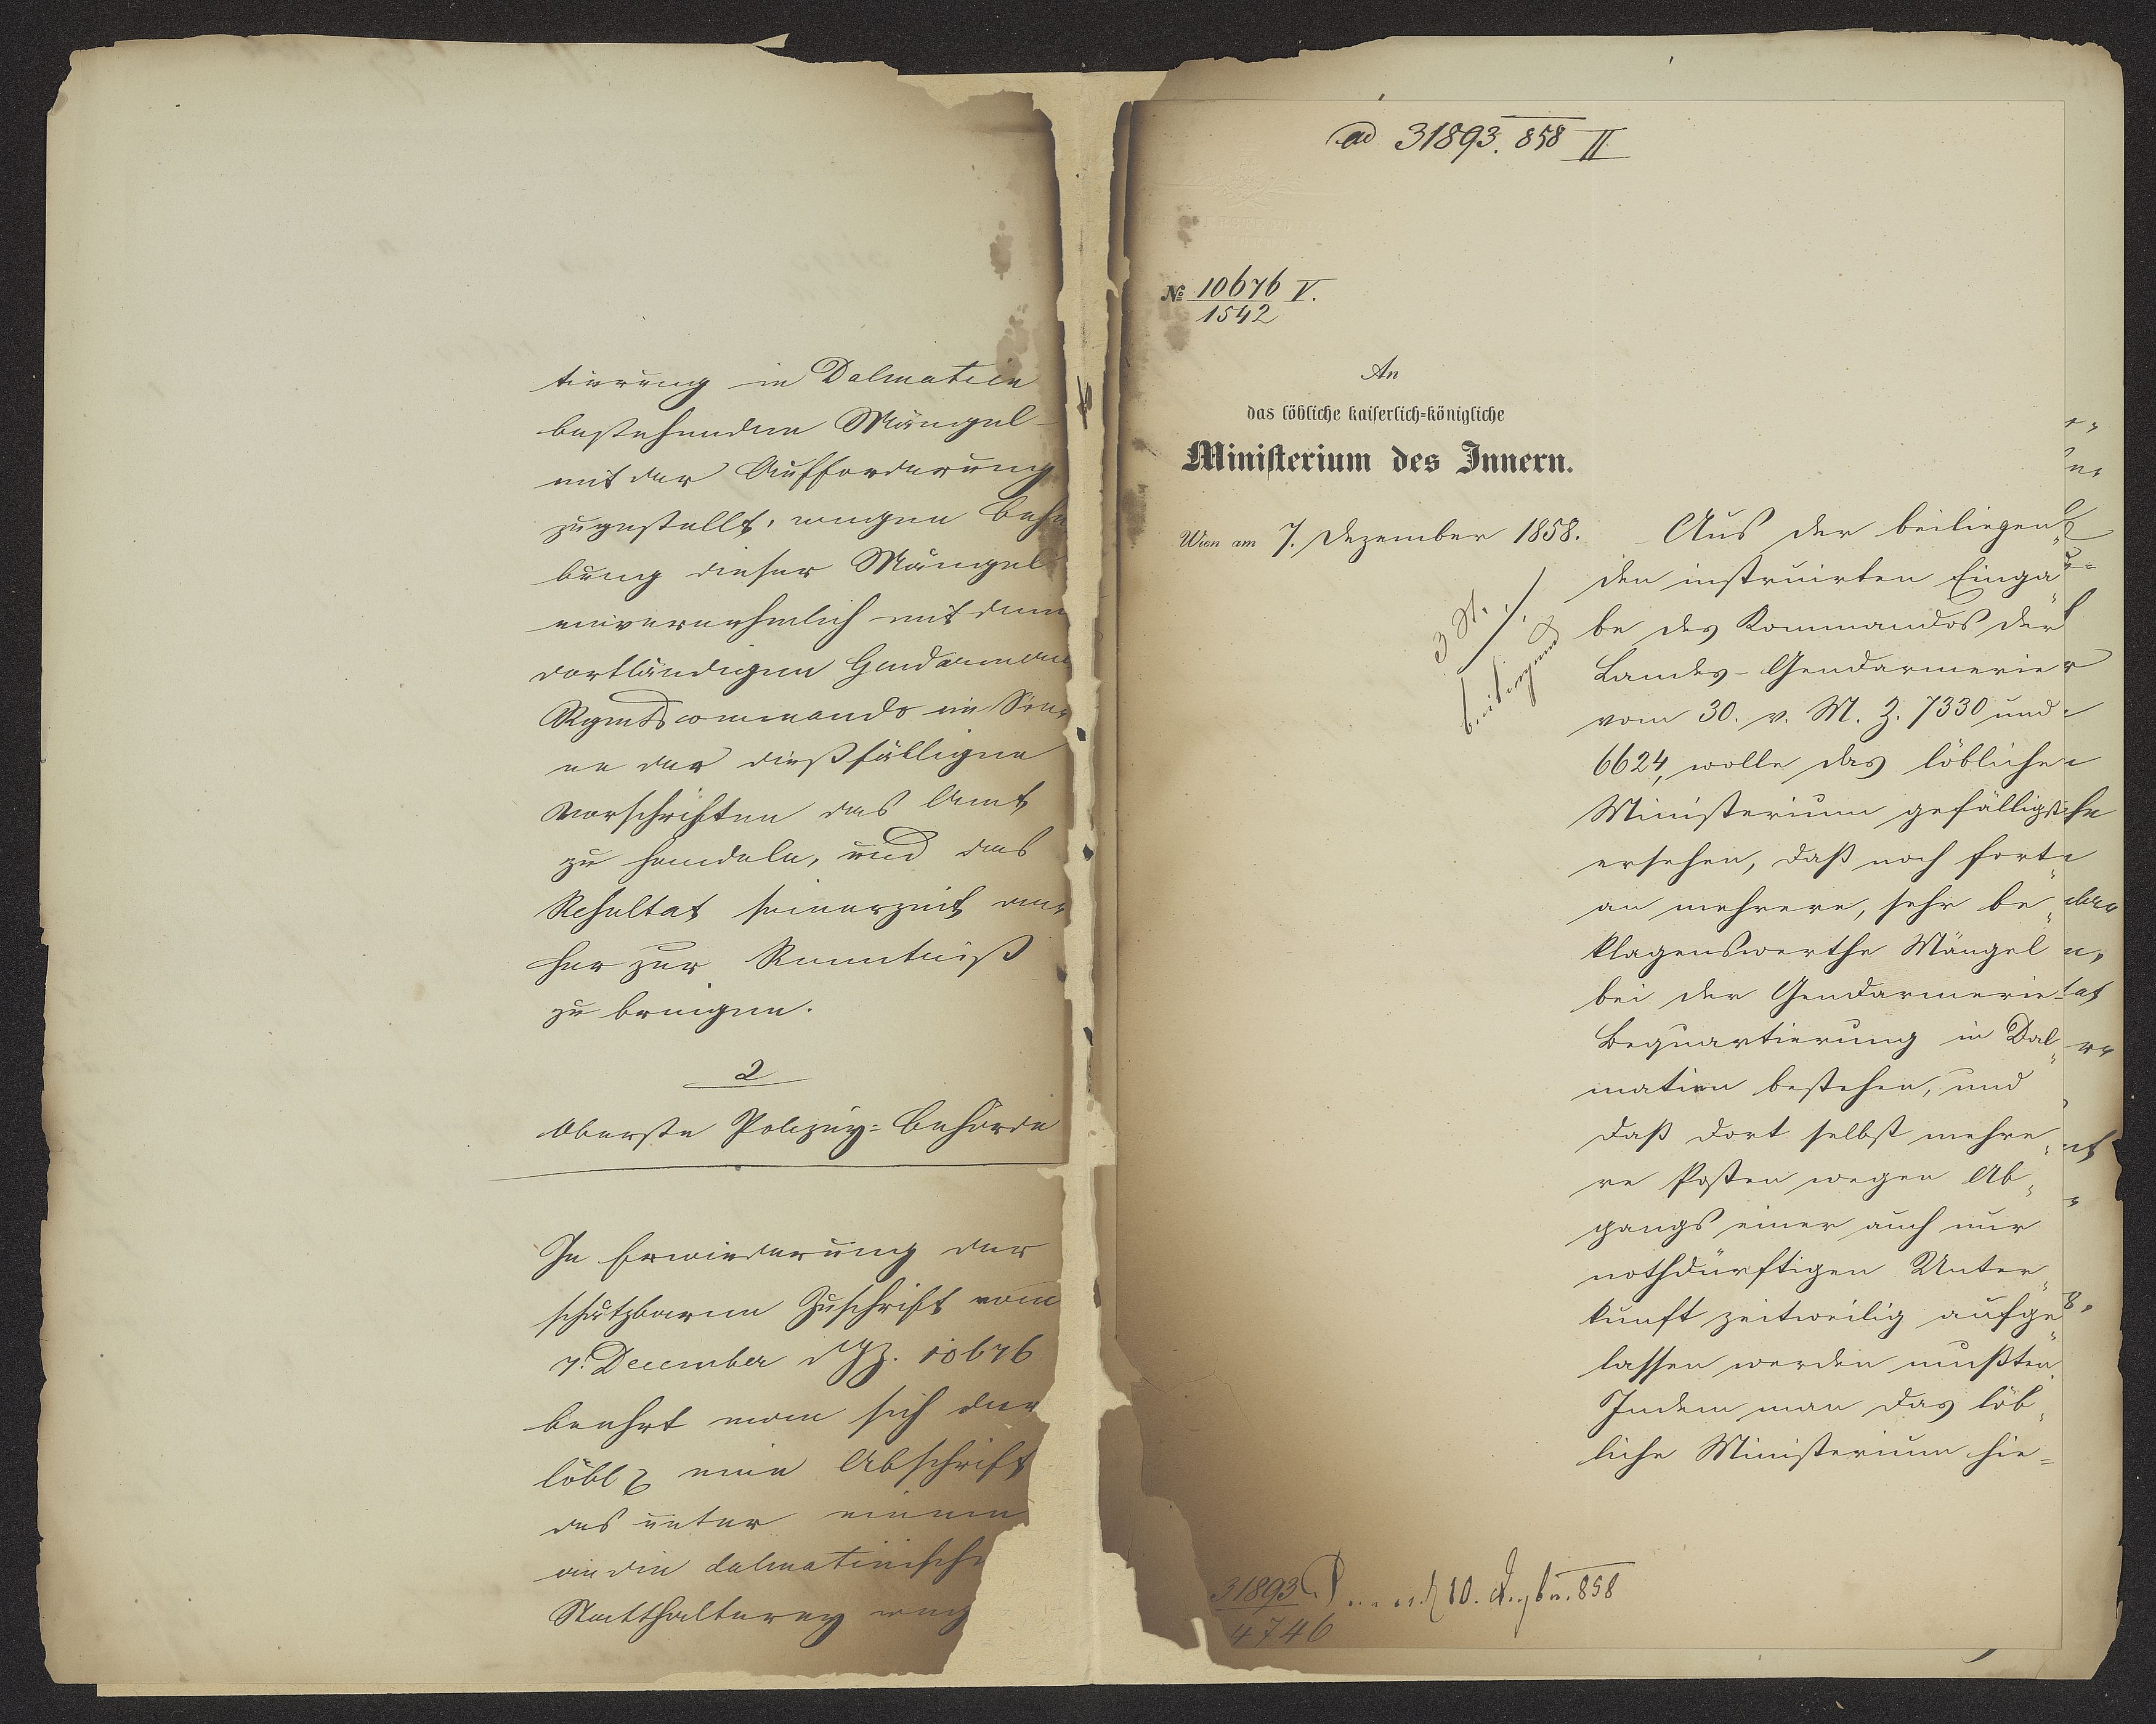 tierung in Dalmatien
bestehenden Mängel
mit der Aufforderung
zugestellt, wegen Behe
bung dieser Mängel
einvernehmlich mit dem
dortländigen Gendarmerie
Rgmtscommando im Sin
ne der dießfälligen
Vorschriften das Amt
zu handeln, und das
Resultat seinerzeit an
her zur Kenntniß
zu bringen.
2
Oberste Polizey-Behörde
In Erwiederung der
schätzbaren Zuschrift vom
7. December d J Z. 10676
beehrt man sich der
löbl eine Abschrift
des unter einem
an die dalmatinische
Statthalterey weg
ad 31893. 858 II
№ 10676 V.
1542
An
das löbliche kaiserlich-königliche
Ministerium des Innern.
Wien am 7. Dezember 1858.
3 St. ./.
Aus der beiliegen„
den instruirten Einga„
be des Kommandos der
Landes-Gendarmerie
vom 30. v. M. Z. 7330 und
6624, wolle das löbliche
Ministerium gefälligst
ersehen, daß noch fort„
an mehrere, sehr be„
klagenswerthe Mängel
bei der Gendarmerie-
Bequartierung in Dal„
matien bestehen, und
daß dort selbst mehre„
re Posten wegen Ab„
gangs einer auch nur
nothdürftigen Unter„
kunft zeitweilig aufge„
lassen werden mußten.
Indem man das löb„
liche Ministerium hie=
31893 10. 858
4746